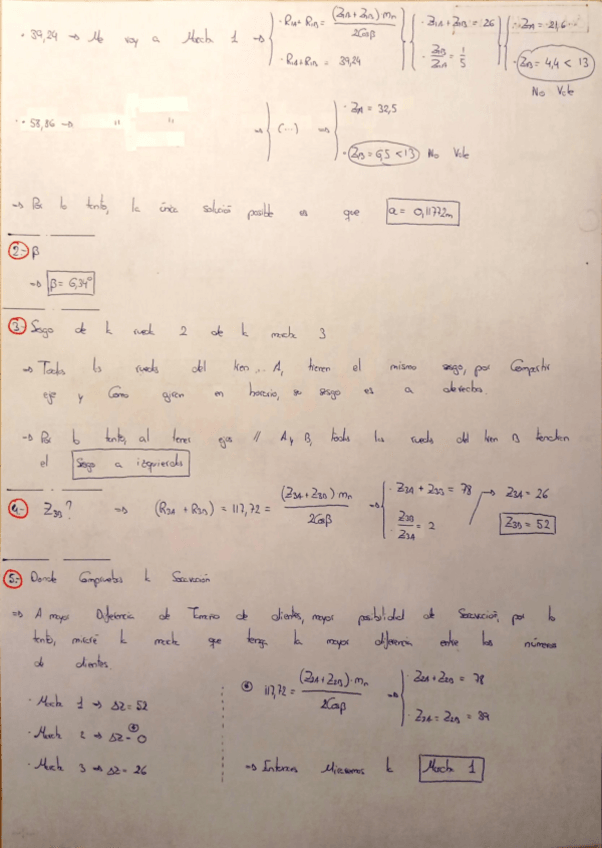 · 39,24 → Me voy a Marcha 1 ⇒ { · R₁A + R₁B = (Z₁A + Z₁B) mn / 2Cosβ { · Z₁A + Z₁B = 26 { · Z₁A = 21,6
· R₁A + R₁B = 39,24 · Z₁B / Z₁A = 1 / 5 · Z₁B = 4,4 < 13
No Vale
· 58,86 → " " ⇒ { (...) ⇒ { · Z₁A = 32,5
· Z₁B = 6,5 < 13 No Vale
⇒ Por lo tanto, la única solución posible es que a = 0,11772m
2.- β
⇒ β = 6,34°
3.- Sesgo de la rueda 2 de la marcha 3
⇒ Todas las ruedas del tren A, tienen el mismo sesgo, por Compartir
eje y Como giran en horario, su sesgo es a derechas.
⇒ Por lo tanto, al tener ejes // A y B, todas las ruedas del tren B tendran
el Sesgo a izquierdas
4.- Z₃B? ⇒ (R₃A + R₃B) = 117,72 = (Z₃A + Z₃B) mn / 2Cosβ ⇒ { · Z₃A + Z₃B = 78 → Z₃A = 26
· Z₃B / Z₃A = 2 Z₃B = 52
5.- Donde Compruebas la Socavación
⇒ A mayor Diferencia de Tamaño de dientes, mayor posibilidad de Socavación, por lo
tanto, miraré la marcha que tenga la mayor diferencia entre los números
de dientes.
· Marcha 1 → ΔZ = 52
· Marcha 2 → ΔZ = 0
· Marcha 3 → ΔZ = 26
117,72 = (Z₂A + Z₂B) · mn / 2Cosβ ⇒ { · Z₂A + Z₂B = 78
· Z₂A = Z₂B = 39
⇒ Entonces Miraremos la Marcha 1